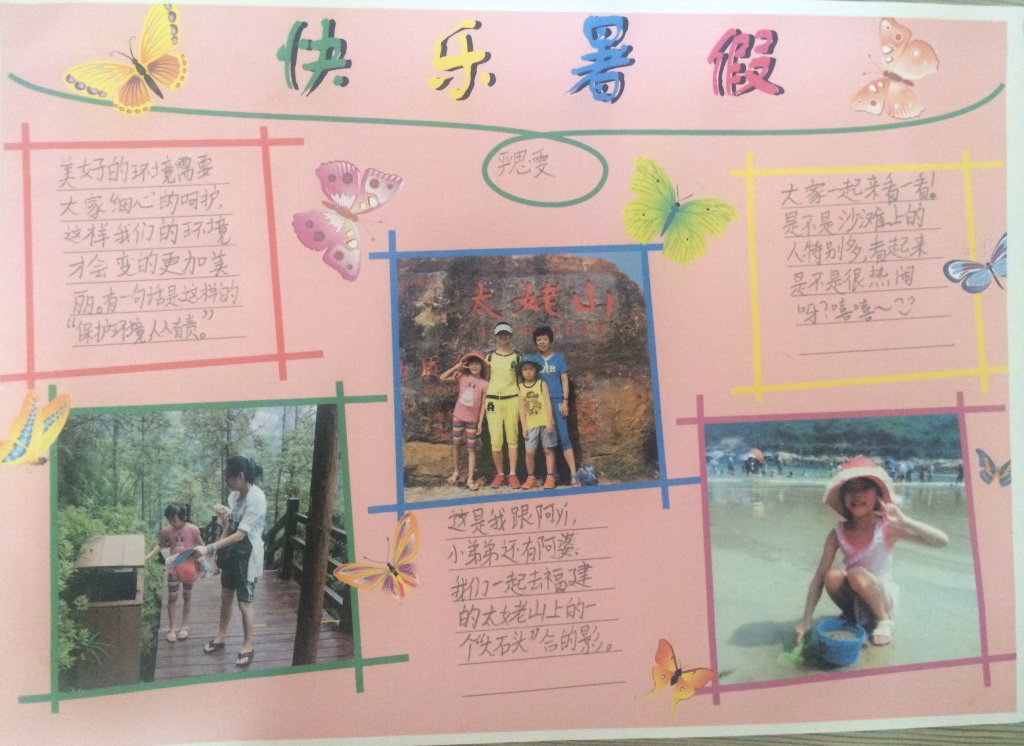 快乐暑假
美好的环境需要
大家"细心"的呵护,
这样我们的环境
才会变的更加美
丽。有一句话是这样的
"保护环境人人有责"。
大家一起来看一看!
是不是沙滩上的
人特别多,看起来
是不是很热闹
呀?嘻嘻~
太姥山
这是我跟阿yi,
小弟弟还有阿婆.
我们一起去福建
的太姥山上的一
个"大石头"合的影。